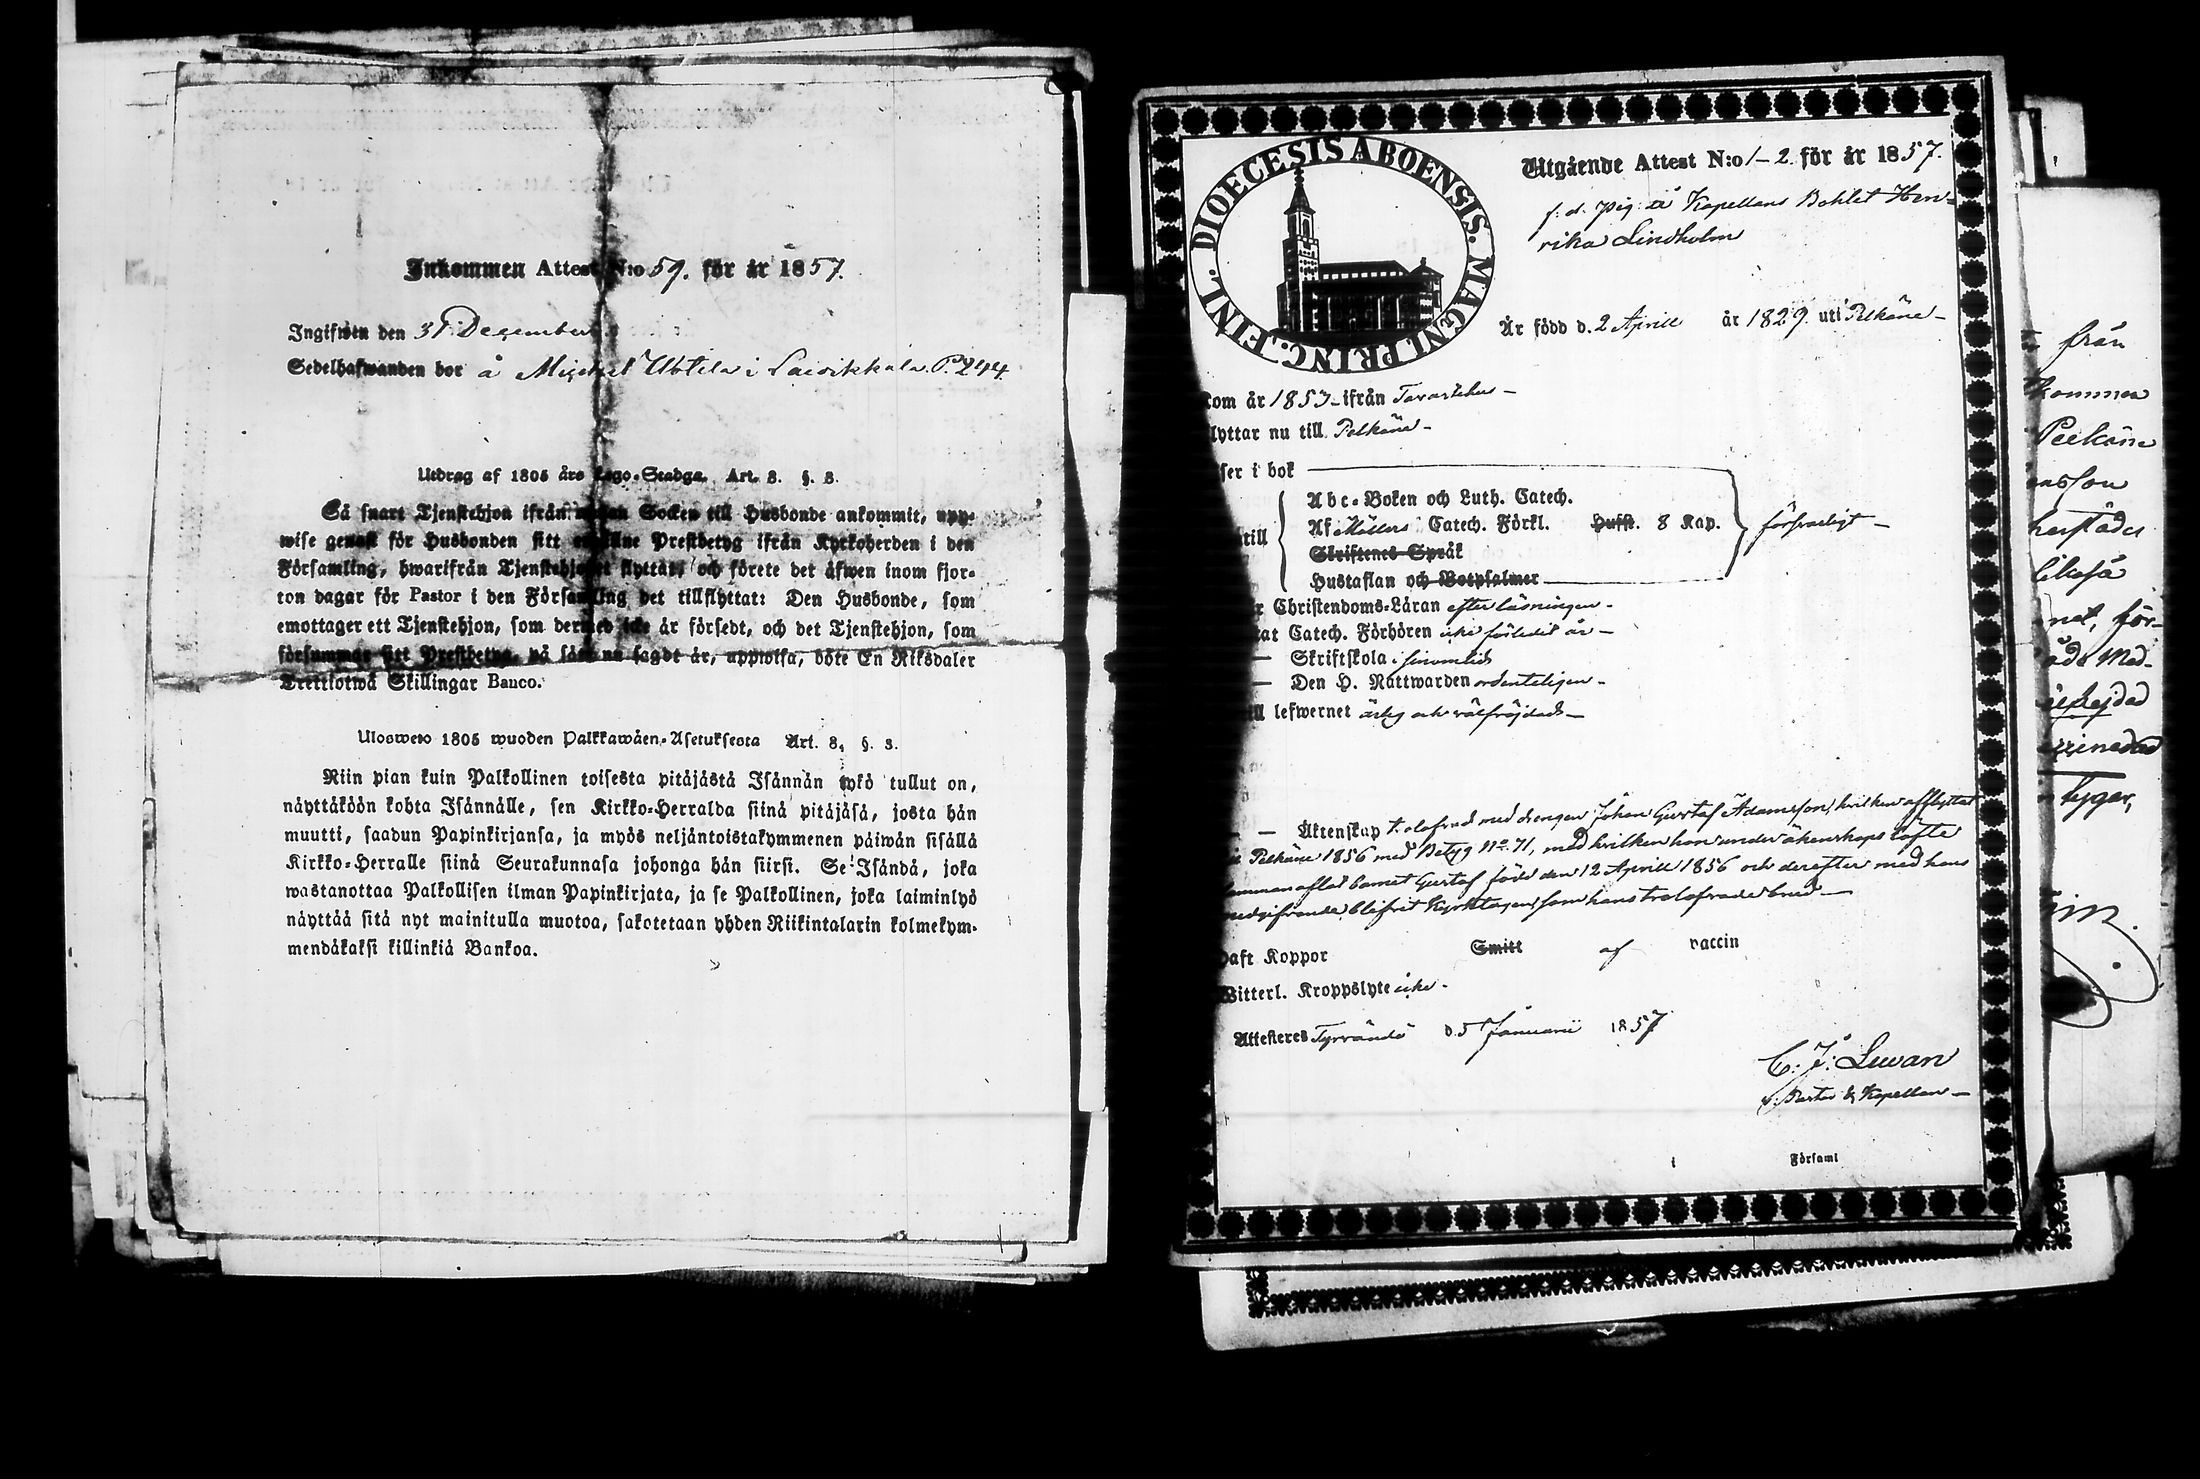 Inkommen Attest N:o 59. för år 1857.
Ingifwen den 31 December
Sedelhafwanden bor å Michel Uotila i Laivikkala P. 244.
Utdrag af 1805 års Lego-Stadga. Art. 8. §. 3.
Så snart Tjenstehjon ifrån annan Socken till Husbonde ankommit, upp-
wise genast för Husbonden sitt erhållne Prestbetyg ifrån Kyrkoherden i den
Församling, hwarifrån Tjenstehjonet flyttat, och förete det äfwen inom fjor-
ton dagar för Pastor i den Församling det tillflyttat: Den Husbonde, som
emottager ett Tjenstehjon, som dermed icke är försedt, och det Tjenstehjon, som
försummar sitt Prestbetyg, på sätt nu sagdt är, uppwisa, böte En Riksdaler
Trettiotwå Skillingar Banco.
Ulosweto 1805 wuoden Palkkawäen-Asetuksesta Art. 8. §. 3.
Niin pian kuin Palkollinen toisesta pitäjästä Isännän tykö tullut on,
näyttäköön kohta Isännälle, sen Kirkko-Herralda siinä pitäjäsä, josta hän
muutti, saadun Papinkirjansa, ja myös neljäntoistakymmenen päiwän sisällä
Kirkko-Herralle siinä Seurakunnasa johonga hän siirsi. Se Isändä, joka
wastanottaa Palkollisen ilman Papinkirjata, ja se Palkollinen, joka laiminlyö
näyttää sitä nyt mainitulla muotoa, sakotetaan yhden Riikintalarin kolmekym-
mendäkaksi killinkiä Bankoa.
DIOECESIS ABOENSIS. MAGNI PRINC. FINL.
Utgående Attest N:o 1-2. för år 1857.
f. d. pig. å Kapellans Bohlet Hen-
rika Lindholm
Är född d. 2 Aprill år 1829. uti Pelkäne
kom år 1853 ifrån Tavastehus
lyttar nu till Pelkäne
ser i bok
Abc-Boken och Luth. Catech.
till Af Möllers Catech. Förkl. Hufst. 8 Kap. försvarligt
Skriftenes Språk
Hustaflan och Botpsalmer
r Christendoms-Läran efter läsningen
at Catech. Förhören icke förledit år
Skriftskola i sinom tid
Den H. Nattwarden ordenteligen
ill lefwernet ärlig och välfräjdad
Äktenskap trolofvad med drengen Johan Gustaf Adamsson, hvilken afflyttat
Pelkäne 1856 med Betyg No 71, med hvilken hon under äktenskaps löfte
sammanaflat barnet Gustaf född den 12 Aprill 1856 och derefter med hans
medgifvande blifvit kyrktagen som hans trolofvade brud.
haft Koppor Smitt af vaccin
Witterl. Kroppslyte icke
Attesteres Tyrvändö d. 5 Januarii 1857
C. J. Lewan
v. Pastor & Kapellan
i Församl
från
kommen
Pelkäne